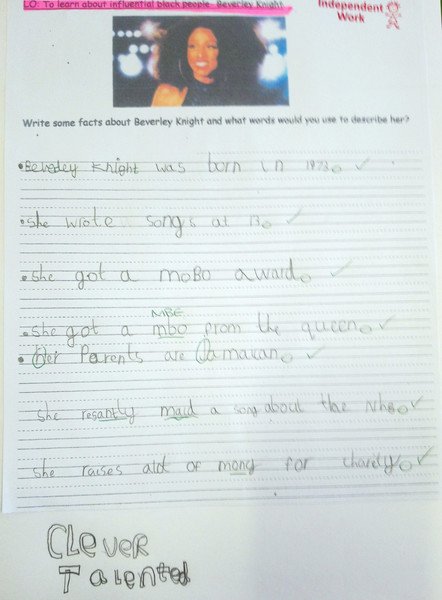 LO: To learn about influential black people. Beverley Knight
Independent
Work
Write some facts about Beverley Knight and what words would you use to describe her?
• Beverley Knight was born in 1973.
• she wrote songs at 13.
• she got a moBo award.
MBE
• she got a mbo from the queen.
• Her Parents are Jamaican.
she resantly maid a song about the Nhs.
she raises alot of mony for charity.
CLever
Talented